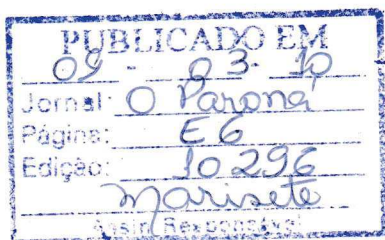 PUBLICADO EM
09 - 03 - 10
Jornal: O Paraná
Página: E6
Edição: 10296
Marisete
Assin. Responsável